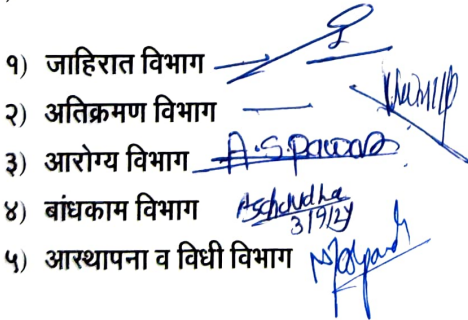 १) जाहिरात विभाग
२) अतिक्रमण विभाग
३) आरोग्य विभाग A.S.Pawar
४) बांधकाम विभाग
3/9/24
५) आस्थापना व विधी विभाग